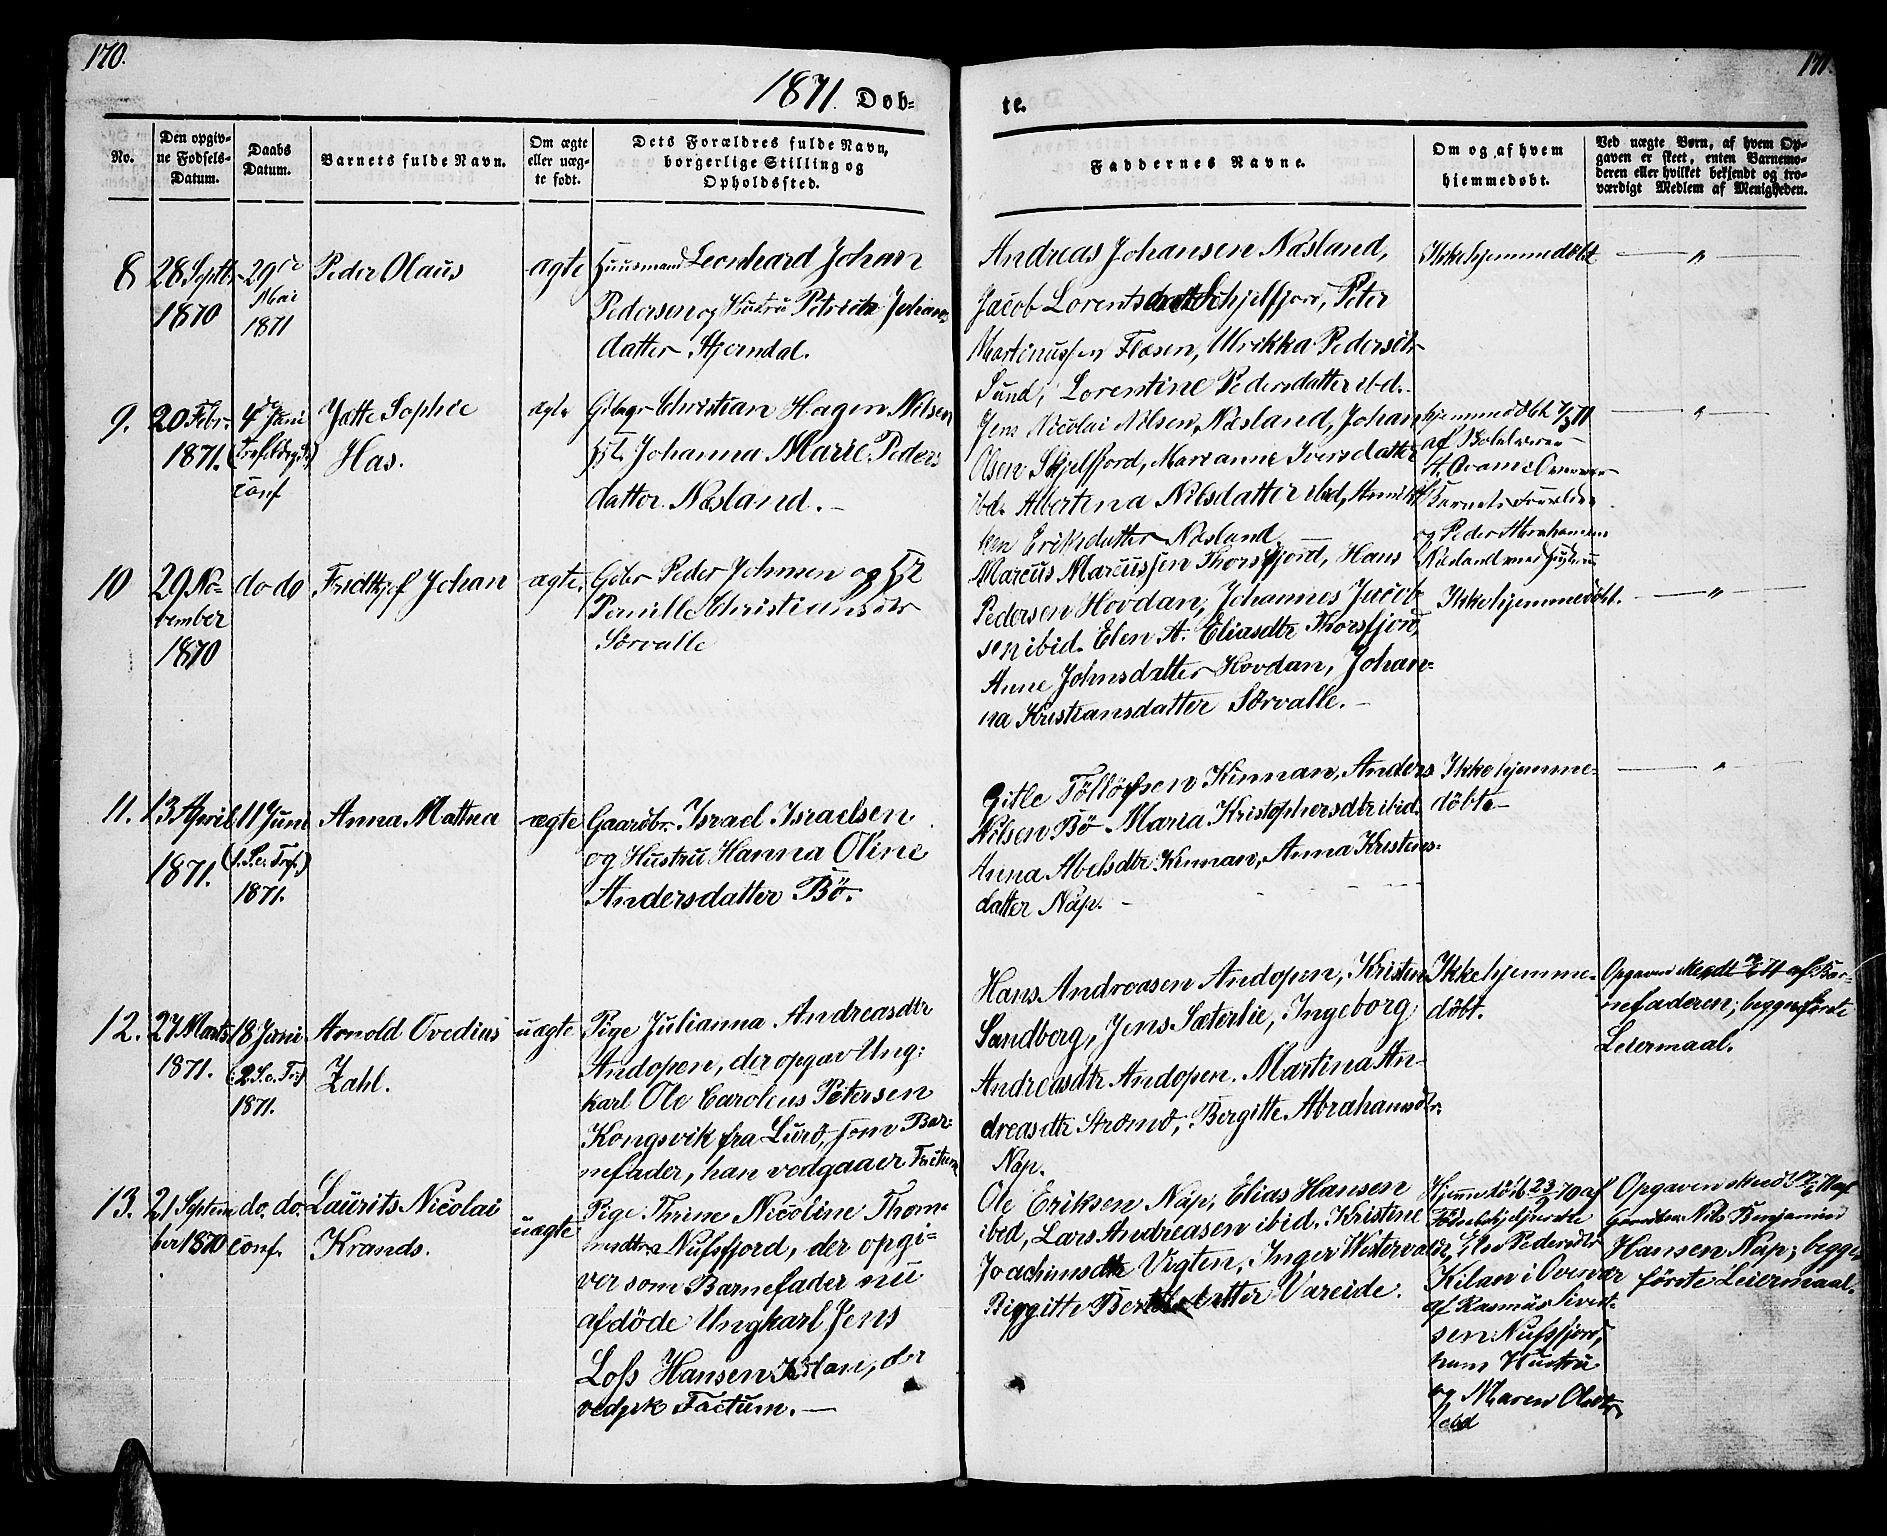 170.
171.
1871. Døb-
te.
No.
Den opgiv-
ne Fødsels-
Datum.
Daabs
Datum.
Barnets fulde Navn.
Om ægte
eller uæg-
te født.
Dets Forældres fulde Navn,
borgerlige Stilling og
Opholdssted.
Faddernes Navne.
Om og af hvem
hjemmedøbt.
Ved uægte Børn, af hvem Op-
gaven er skeet, enten Barnemo-
deren eller hvilket bekjendt og tro-
værdigt Medlem af Menigheden.
8
28 Septr.
1870
29de
Mai
1871
Peder Olaus
ægte
Huusmand Leonhard Johan
Pedersen og Hustru Petrikke Johan-
datter Stjerndal.
Andreas Johansen Næsland,
Jacob Lorents Schjelfjord, Peter
Martinussen Flæsen, Ulrikka Pedersdtr
Sund, Lorentine Pedersdatter ibd.
Ikke hjemmedøbt
"
9.
20 Febr.
1871.
4de Juni
conf
Jatte Sophie
Has.
ægte
Gbr Christian Hagen Nilsen
Johanna Marie Peders
datter Næsland.
Jens Nicolai Nilsen Næsland, Johan
Olsen Skjelfjord, Marianne Iversdatter
ibd. Albertina Nilsdatter ibd, Annik
ken Eriksdatter Næsland
hjemmedøbt
af
Barnets Forældre
og Peder Abrahamsen
Næsland med Hustru
"
10
29 No-
vember
1870
do do
Fridthjof Johan
ægte.
Gbr Peder Johnsen og
Pernille Christiansdtr
Sørvalle
Marcus Marcussen Thorsfjord, Hans
Pedersen Hovdan, Johannes Jacob-
sen ibid. Elen A. Eliasdtr Thorsfjord,
Anne Johnsdatter Hovdan, Johan-
na Kristiansdatter Sørvalle.
Ikke hjemmedøbt.
"
11.
13 April
1871.
11 Juni
(1. S. e. Tref.)
1871.
Anna Mattea
ægte
Gaardbr. Israel Israelsen
og Hustru Hanna Oline
Andersdatter Bø.
Gitle Tollofsen Kinnan, Anders
Nilsen Bø Maria Kristophersdtr ibid.
Anna Abelsdtr Kinnan, Anna Kristens-
datter Nap.
Ikke hjemme-
døbt
"
12.
27 Marts
1871.
18 Juni
(2. S. e. Tref)
1871.
Arnold Ovedius
Zahl.
uægte
Pige Julianna Andreasdtr
Andopen, der opgav Ung-
karl Ole Carolius Petersen
Kongsvik fra Lurø, som Bar-
nefader, han vedgaaer Factum
Hans Andreasen Andopen, Kristen
Sandberg, Jens Sæterlie, Ingeborg
Andreasdtr Andopen. Martina An-
dreasdtr Strømø, Bergitte Abrahamsdtr.
Nap.
Ikke hjemme-
døbt.
Opgaven skeedt af Bar-
nefaderen; begges første
Leiermaal.
13.
21 Septem
ber 1870
do. do.
conf.
Laurits Nicolai
Krands.
uægte
Pige Thrine Nicoline Thom-
Nufsfjord, der opgi-
ver som Barnefader nu
afdøde Ungkarl Jens
Loss Hansen Kilan, der
vedgik Factum.
Ole Eriksen Nap, Elias Hansen
ibid, Lars Andreasen ibid. Kristine
Joachimsdtr Vigten, Inger Westervalde,
Birgitte Berthelsdatter Vareide.
Hjemmedøbt 23/9 70 af
Pedersdtr
Kilan i Overvær
af Rasmus Sivert-
sen Nufsfjord,
hans Hustru
og Maren Olsdtr
ibd
Opgaven skeedt af
Gaardbr. Nils Benjamin
Hansen Nap; begges
første Leiermaal.